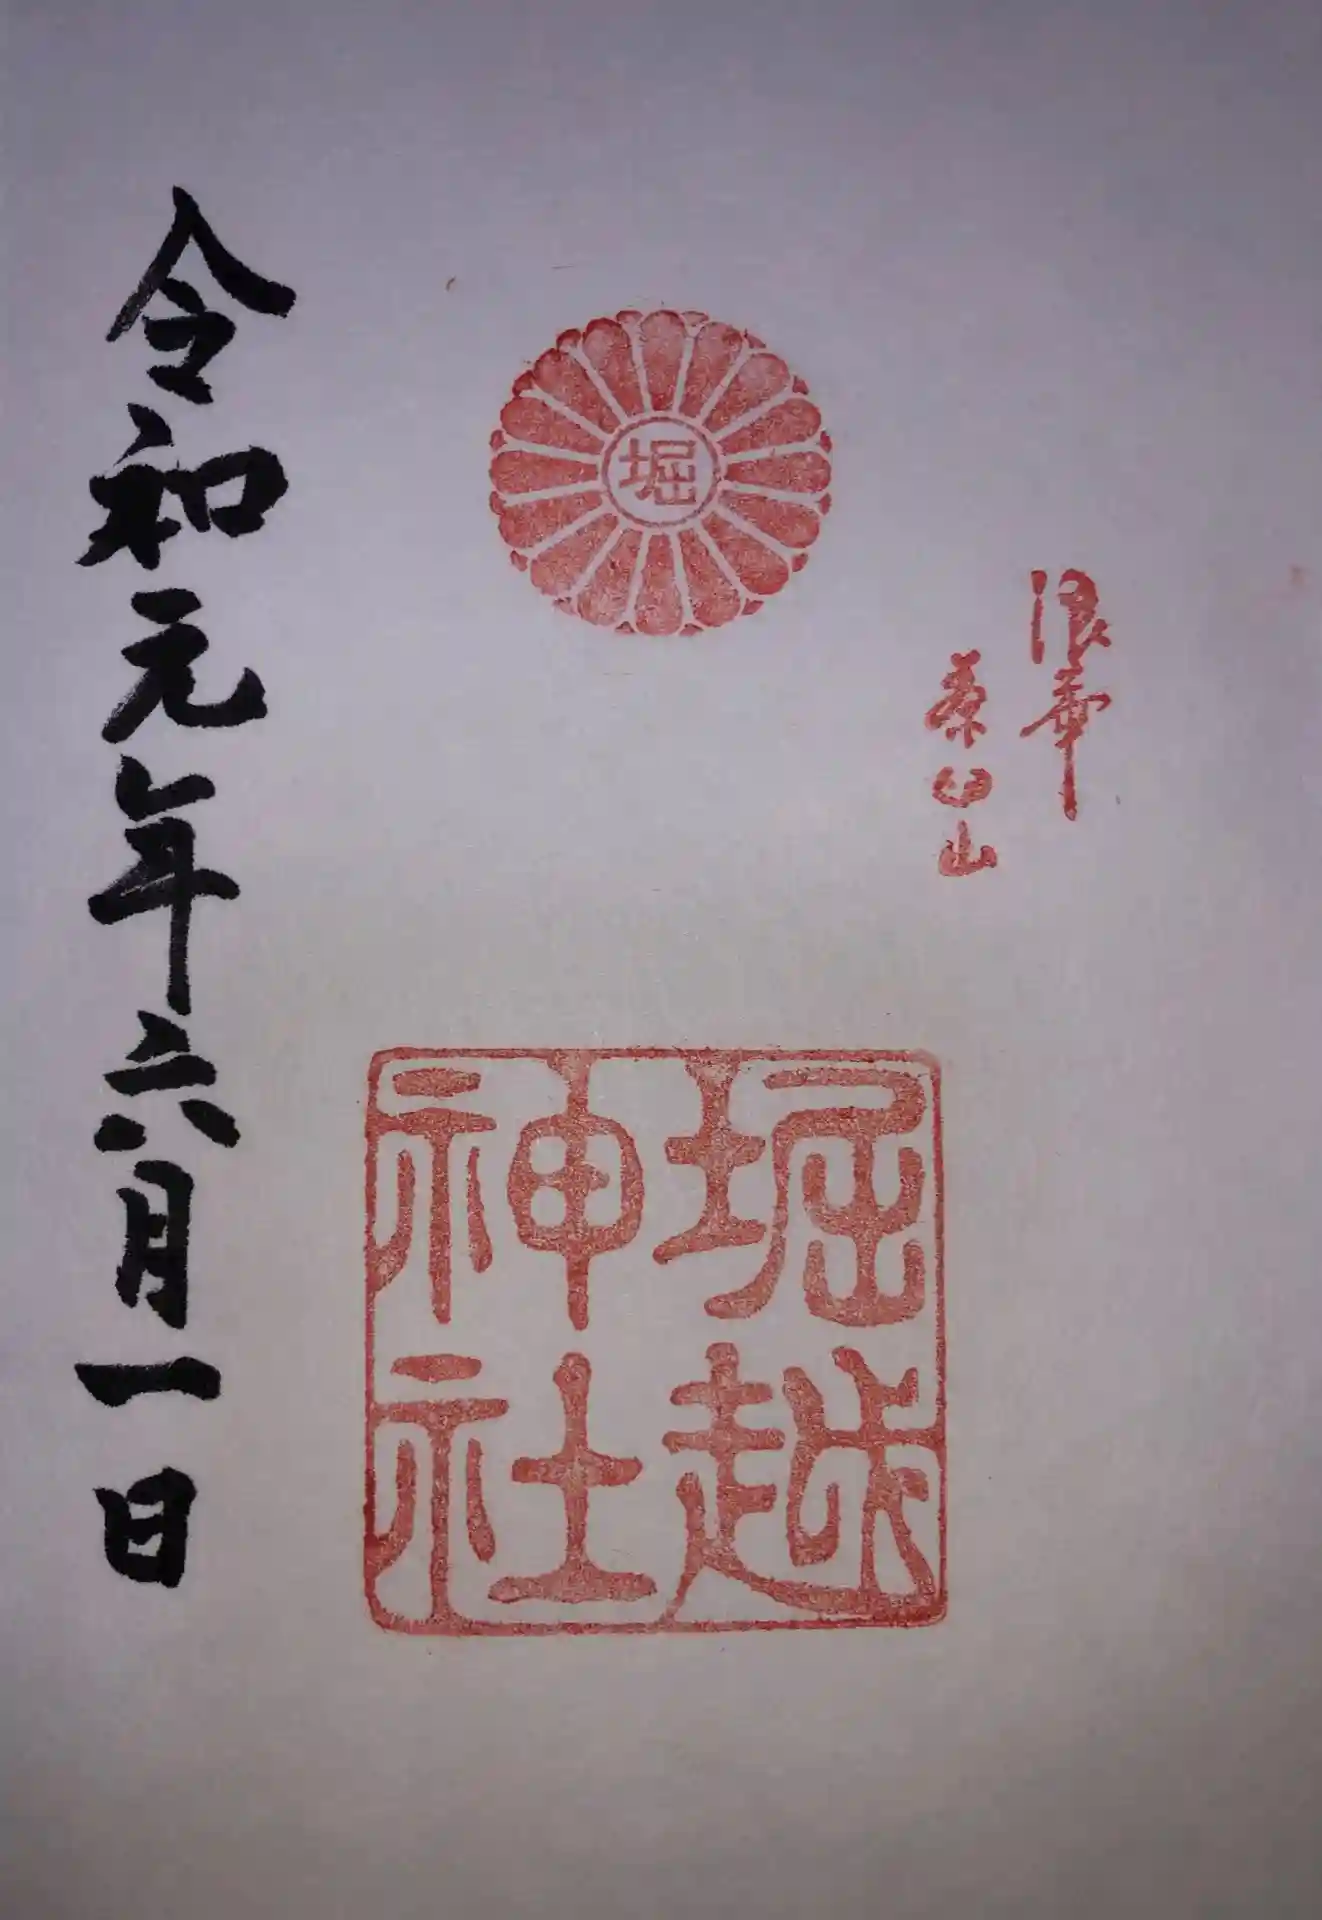 浪華
茶臼山
堀
堀越
神社
令和元年六月一日